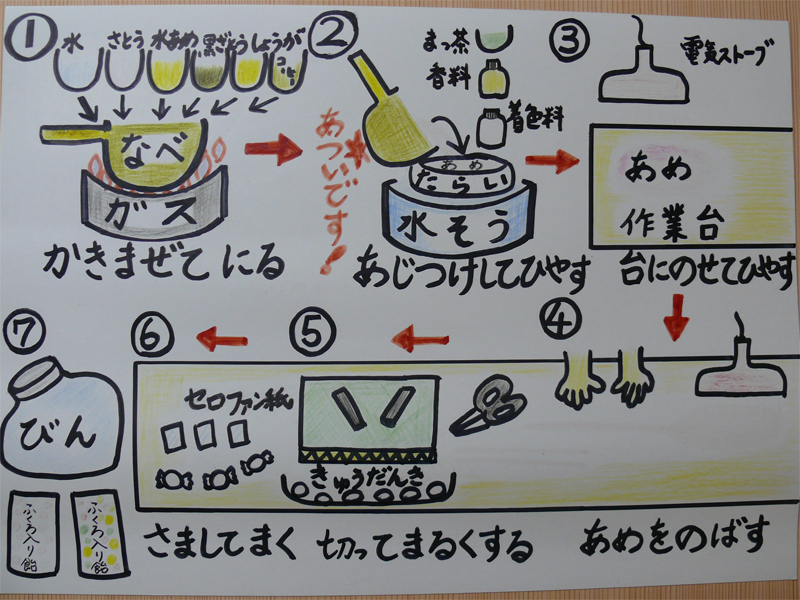 ①
水 さとう 水あめ 黒ざとう しょうが
なべ
ガス
かきまぜて にる
あついです!
②
まっ茶
香料
着色料
あめ
たらい
水そう
あじつけしてひやす
③
電気ストーブ
あめ
作業台
台にのせてひやす
④
あめをのばす
⑤
きゅうだんき
切ってまるくする
⑥
セロファン紙
さましてまく
⑦
びん
ふくろ入り飴
ふくろ入り飴